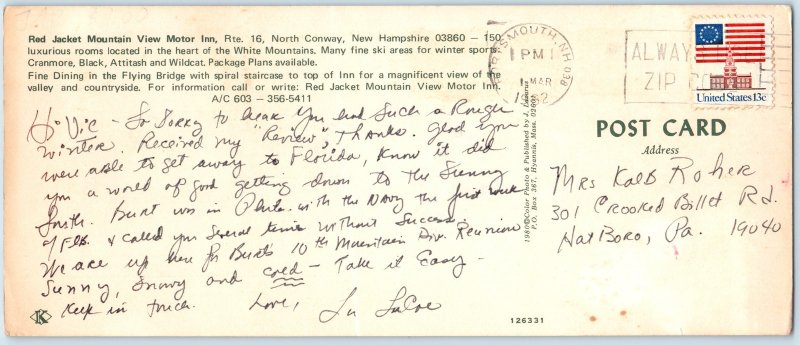 Red Jacket Mountain View Motor Inn, Rte. 16, North Conway, New Hampshire 03860 — 150
luxurious rooms located in the heart of the White Mountains. Many fine ski areas for winter sports
Cranmore, Black, Attitash and Wildcat. Package Plans available.
Fine Dining in the Flying Bridge with spiral staircase to top of Inn for a magnificent view of the
valley and countryside. For information call or write: Red Jacket Mountain View Motor Inn,
A/C 603 — 356-5411
Hi Vic - So Sorry to hear you had such a Rough
winter. Received my "Review", Thanks. Glad you
were able to get away to Florida, Know it did
you a world of good getting down to the Sunny
South. Burt was in Phila. with the Navy the first week
of Feb. & called you several times without success.
We are up here for Burt's 10th Mountain Div. Reunion
Sunny, Snowy and cold - Take it Easy -
Keep in touch. Love,
K
PORTSMOUTH, NH 038
PM
MAR
ALWAY
ZIP CO
United States 13c
1980©Color Photo & Published by J. Lazarus
P.O. Box 367, Hyannis, Mass. 02601
POST CARD
Address
Mrs Kalb Roher
301 Crooked Billet Rd.
Hatboro, Pa. 19040
126331